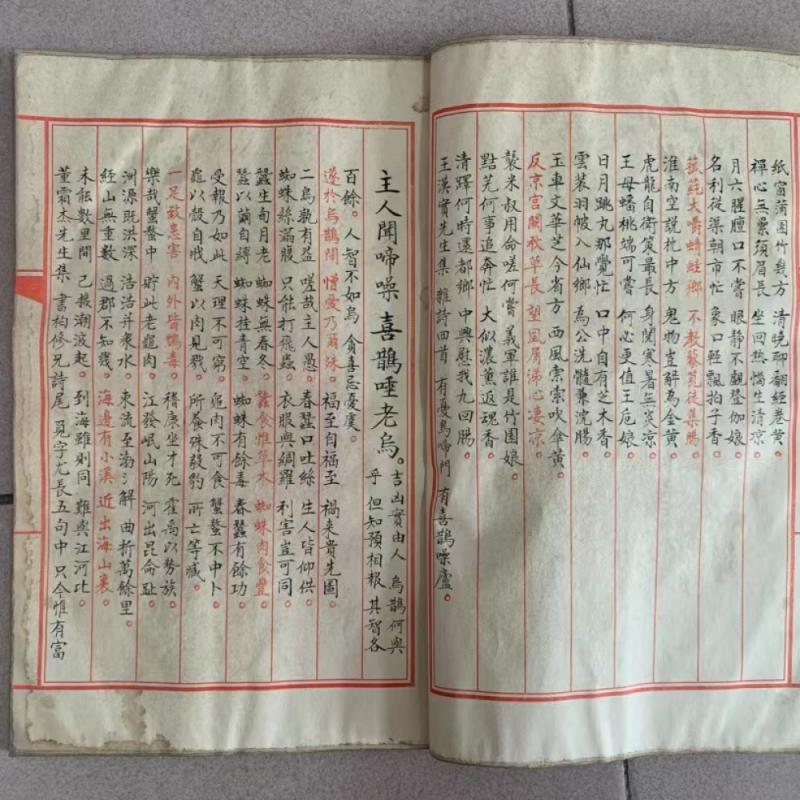 紙窗蒲團竹几方 清曉聊翻經卷黄
禪心無累須眉長 坐回热惱生清凉
月六腥膻口不嘗 眼静不覷登伽娘
名利從渠朝市忙 象口輕飄拍子香
菰蒓大嚼蜻蛙鄉 不教藜莧徒集腸
淮南空説枕中方 鬼物豈解為金黄
虎龍自衛筴最長 身閱寒暑無炎凉
王母蟠桃端可嘗 何心更值王卮娘
日月跳丸那覺忙 口中自有芝木香
雲裝羽帔入仙鄉 為公洗髓兼浣腸
玉車文華芝今省方 西風索索吹傘黄
反京宫闕秋草長 望風屑涕心凄凉
襲米叔用侖嗟何嘗 義軍誰是竹園娘
點羌何事追奔忙 大似濃薰返魂香
清蹕何時還都鄉 中興慰我九回腸
王漢實先生集 雜詩四首 有憂烏啼門 有喜鵲噪廬
主人聞啼噪 喜鵲唾老烏 吉凶實由人 烏鵲何與
乎 但知預相報 其智各
百餘 人智不如烏 貪喜忌憂虞 福至自福至 禍来貴先圖
遂於烏鵲間 憎愛乃爾殊
二烏孰有益 嗟哉主人愚 春蠶口吐絲 生人皆仰供
蜘蛛絲滿腹 只能打飛蟲 衣服與綢羅 利害豈可同
蠶生旬月老 蜘蛛無春冬 蠶食惟草木 蜘蛛肉食豐
蠶以繭自縛 蜘蛛挂青空 蜘蛛有餘毒 春蠶有餘功
受報乃如此 天理不可窮 龜肉不可食 蟹螯不中卜
龜以殼自戕 蟹以肉見戮 所養殊殺豹 所亡等臧
一足致患害 内外皆媯毒 稽康坐才死 霍禹以勢族
樂哉蟹螯中 貯此老龜肉 江發岷山陽 河出昆侖趾
洲源既洪深 浩浩并衆水 東流至渤澥 曲折萬餘里
經山無重數 過郡不知幾 海邊有小溪 近出海山裏
未能數里間 己接潮波起 到海雖則同 難與江河比
董霜杰先生集 書枸修兄詩尾 覓字尤長五句中 只今惟有富